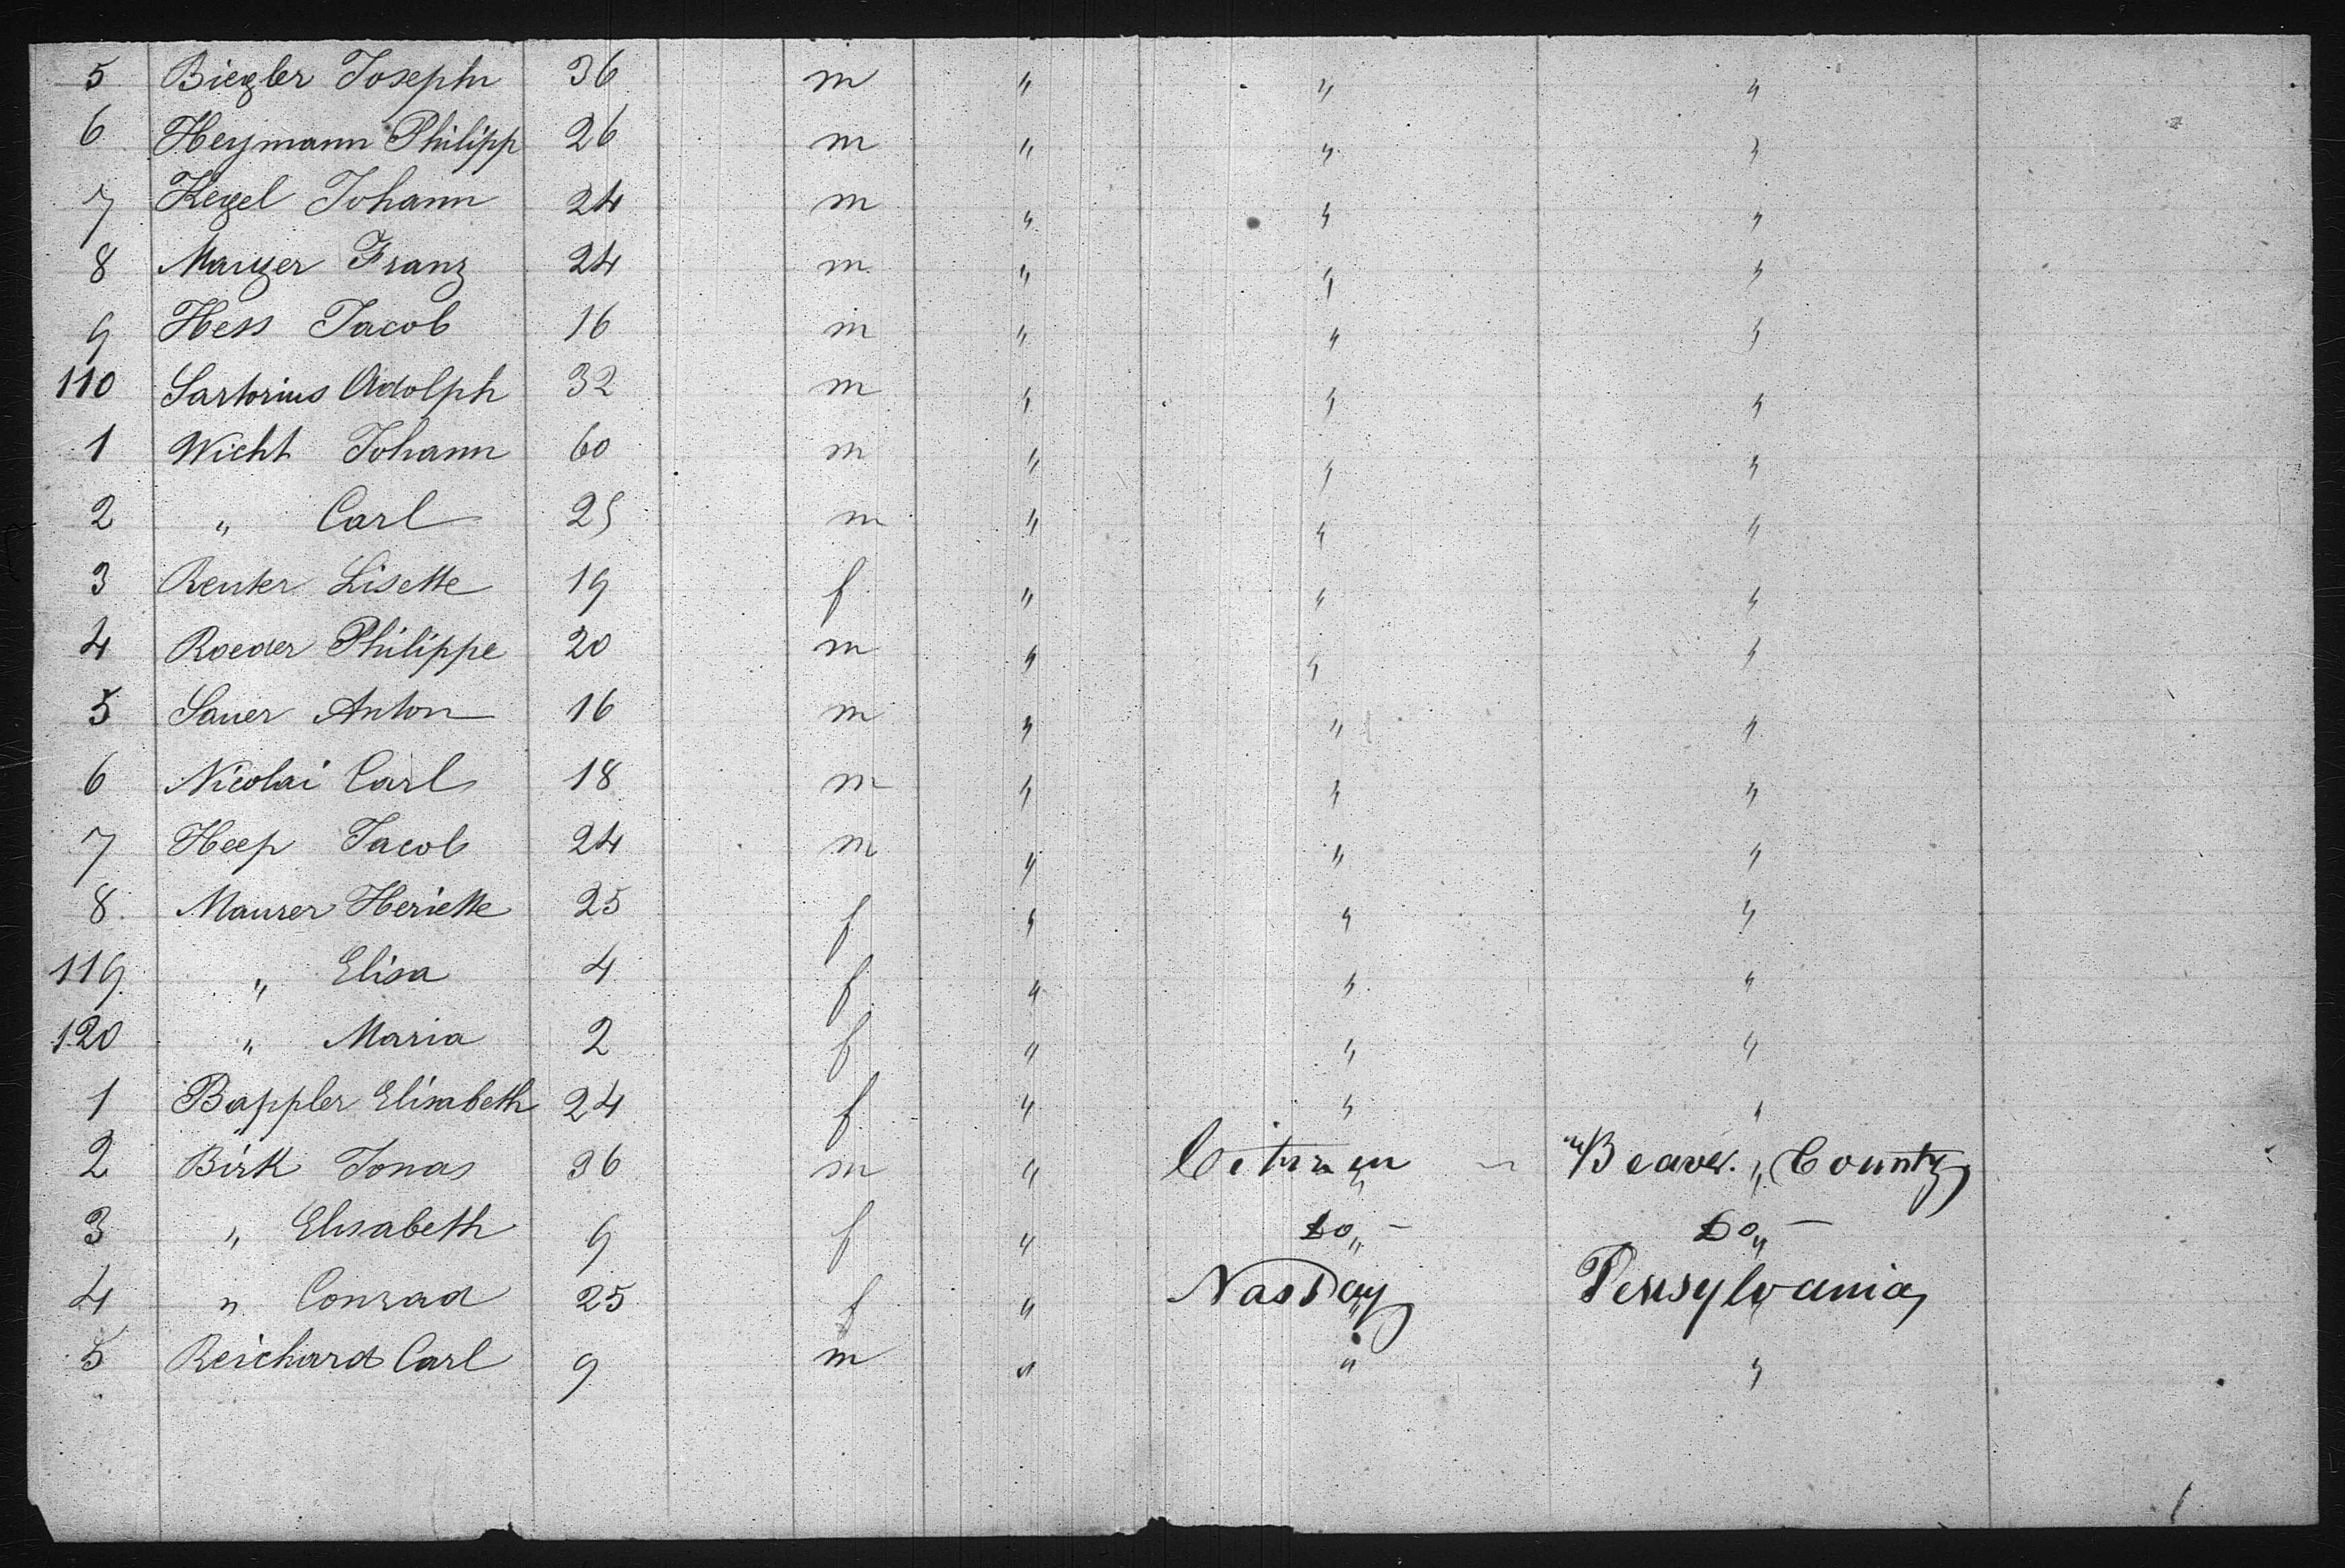 5 Biegler Joseph 36 m " " "
6 Heymann Philipp 26 m " " "
7 Kegel Johann 24 m " " "
8 Franz 24 m " " "
9 Hess Jacob 16 m " " "
110 Sartorius Adolph 32 m " " "
1 Wicht Johann 60 m " " "
2 " Carl 25 m " " "
3 Reuter Lisette 19 f " " "
4 Roeder Philippe 20 m " " "
5 Sauer Anton 16 m " " "
6 Nicolai Carl 18 m " " "
7 Heep Jacob 24 m " " "
8 Maurer Heriette 25 f " " "
119 " Elisa 4 f " " "
120 " Maria 2 f " " "
1 Bappler Elisabeth 24 f " " "
2 Birk Jonas 36 m " " Beaver " County
3 " Elisabeth 9 f " Do " – Do " –
4 " Conrad 25 f " " Pensylvania "
5 Reichard Carl 9 m " " "